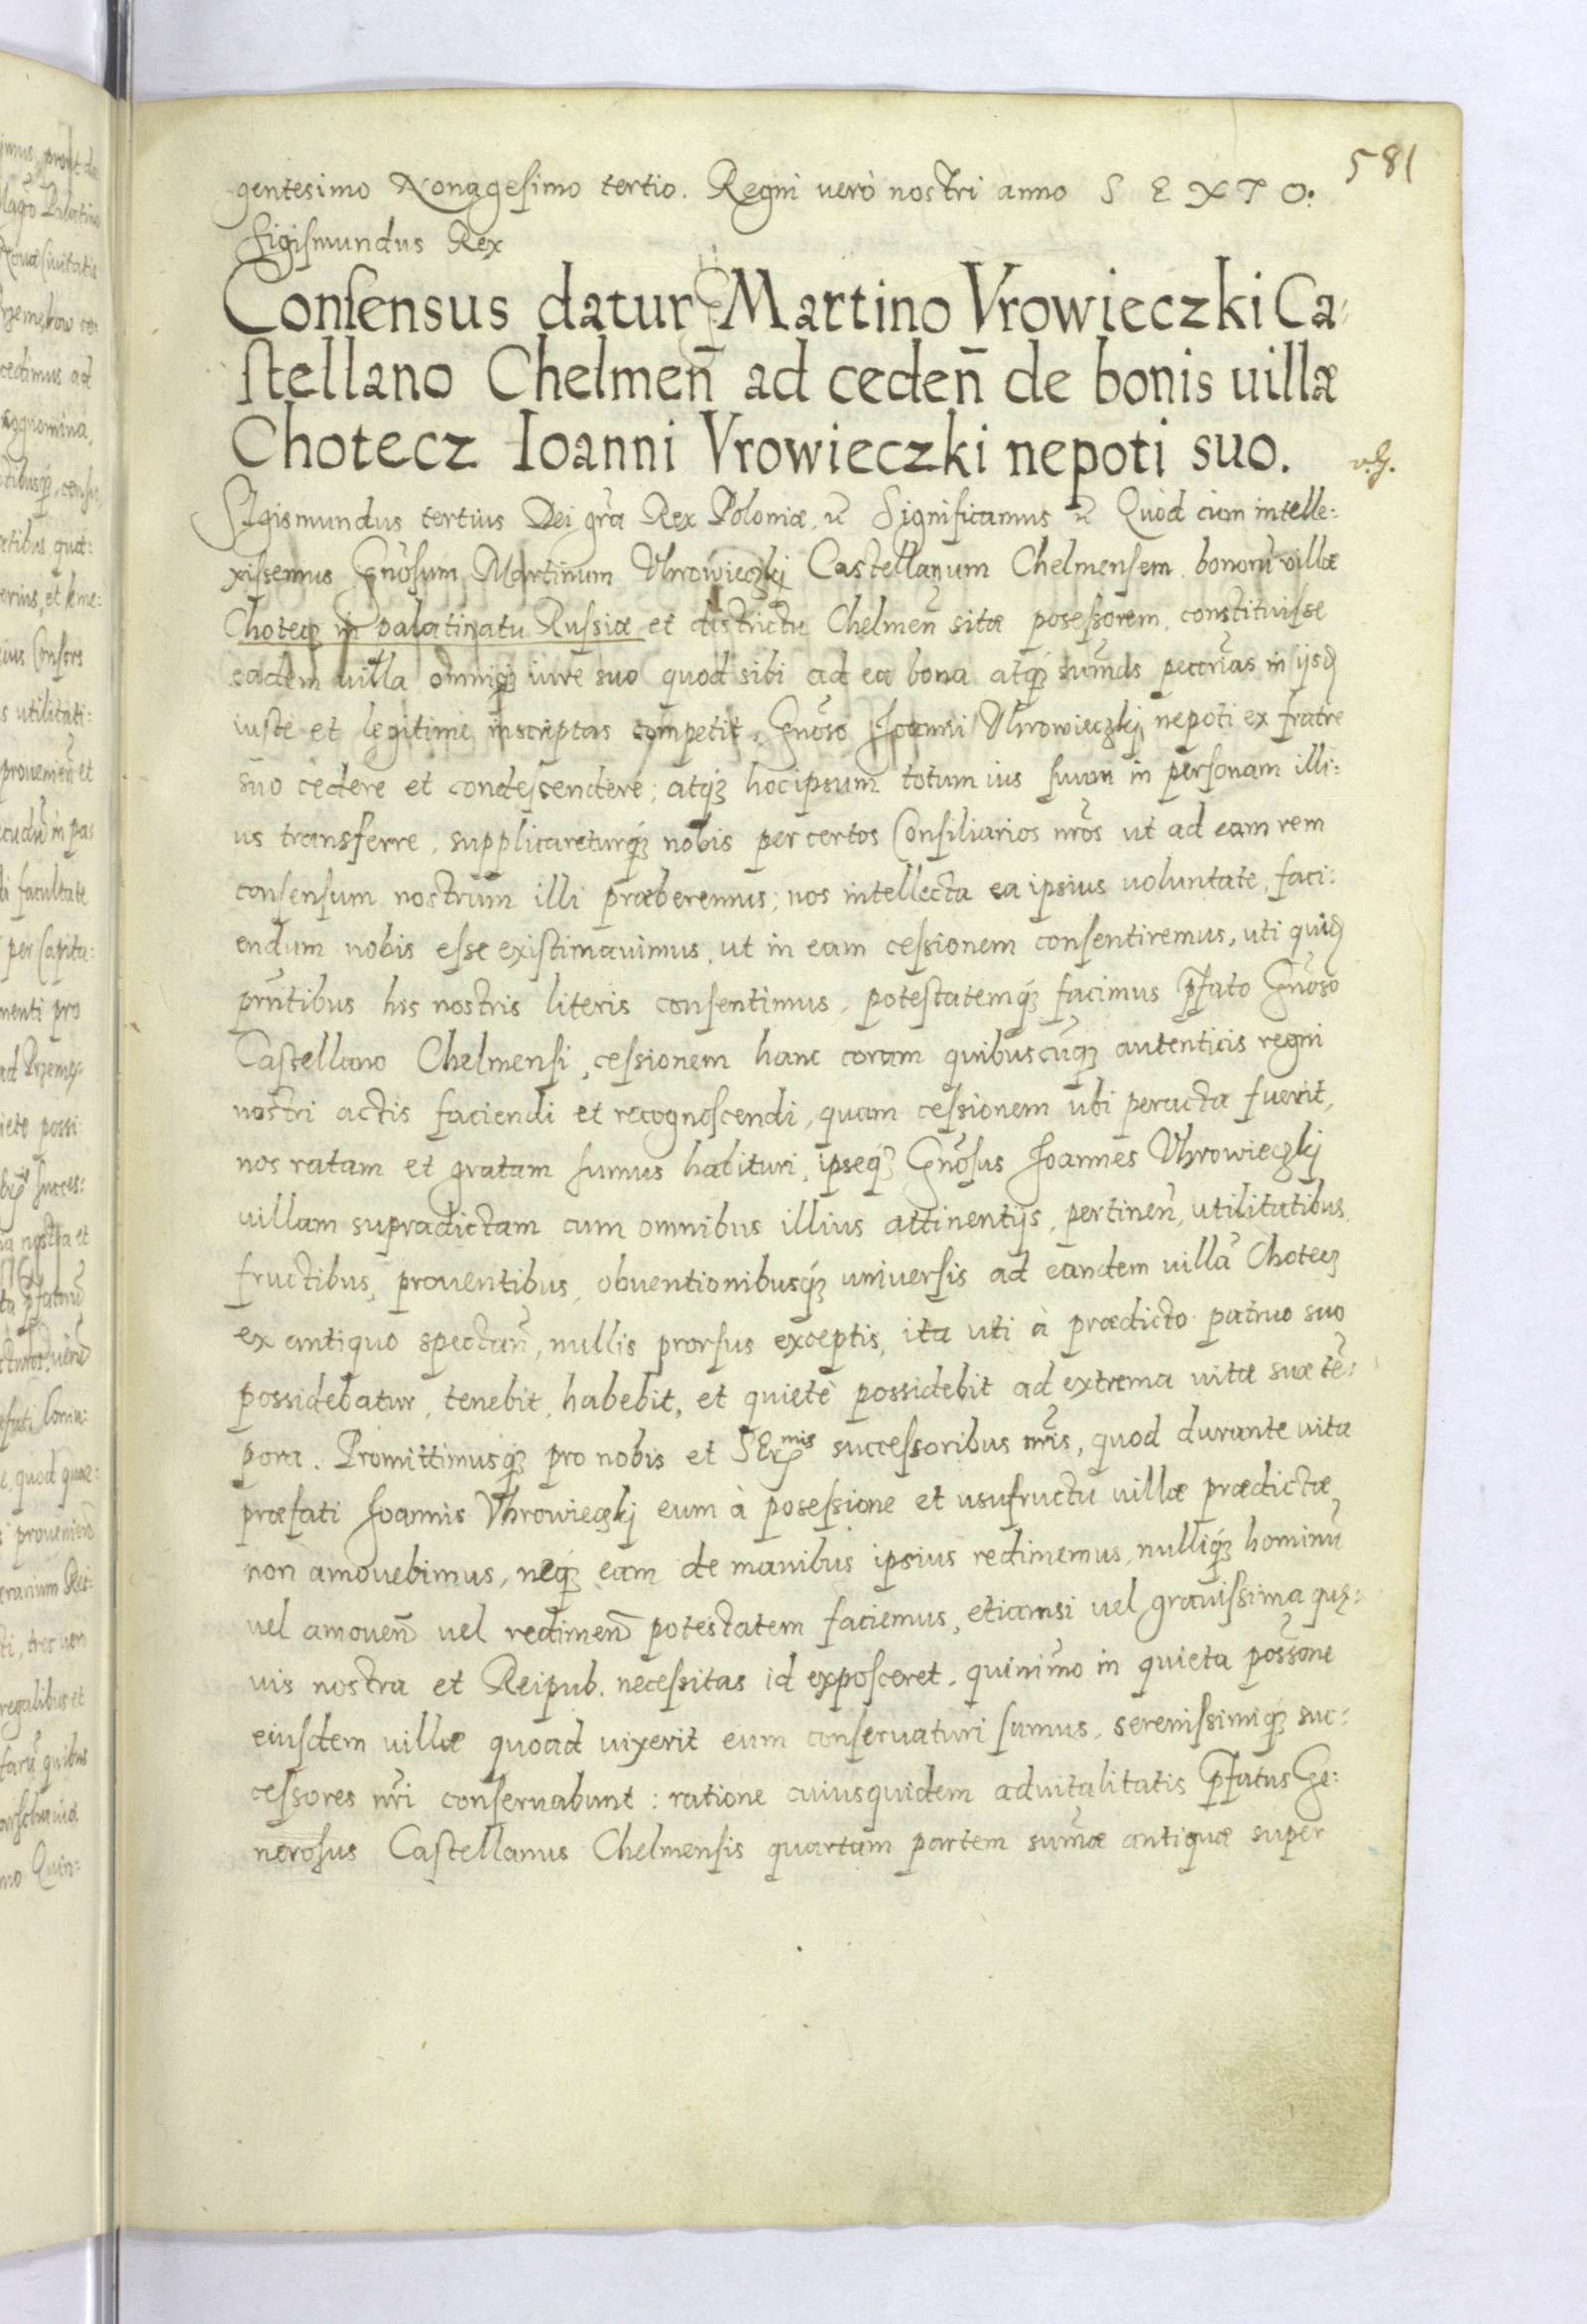 581
gentesimo Nonagesimo tertio. Regni verò nostri anno S E X T O.
Sigismundus Rex
Consensus datur Martino Vrowieczki Ca-
stellano Chelmen̄ ad ceden̄ de bonis uillæ
Chotecz Ioanni Vrowieczki nepoti suo.
Sigismundus tertius Dei gr̃a Rex Poloniæ, Significamus Quòd cùm intelle:
xissemus Gn̄osum Martinum Vhrowieczkj Castellanum Chelmensem bonorũ villæ
Chotecz in palatinatu Russiæ et districtu Chelmen̄ sitæ posessorem, constituisse
eadem uilla omniq́ iure suo quod sibi ad ea bona atq́ sum̄as pecun̄ias in ijsd
iuste et legitime inscriptas competit, Gn̄oso Joanni Vhrowieczkj nepoti ex fratre
suo cedere et condescendere; atq́ hoc ipsum totum ius suum in personam illi:
us transferre, supplicareturq́ nobis per certos Consiliarios nr̄os ut ad eam rem
consensum nostrum illi præberemus; nos intellecta ea ipsius voluntate, faci:
endum nobis esse existimauimus, ut in eam cessionem consentiremus, uti quid
pñtibus his nostris literis consentimus, potestatemq́ facimus p̄fato Gn̄oso
Castellano Chelmensi, cessionem hanc coram quibuscũq́ autenticis regni
nostri actis faciendi et recognoscendi, quam cessionem ubi peracta fuerit,
nos ratam et gratam sumus habituri, ipseq́ Gn̄osus Joannes Vhrowieczkj
uillam supradictam cum omnibus illius attinentijs, pertinen̄, utilitatibus,
fructibus, prouentibus, obuentionibusq́ uniuersis ad eandem uillã Chotecz
ex antiquo spectan̄, nullis prorsus exceptis, ita uti à prædicto patruo suo
possidebatur, tenebit, habebit, et quietè possidebit ad extrema uitæ suæ tẽ:
pora. Promittimusq́ pro nobis et SEr̄mis successoribus nr̄is, quod durante uita
præfati Joannis Vhrowieczkj eum à posessione et usufructu uillæ prædictæ
non amouebimus, neq́ eam de manibus ipsius redimemus, nulliq́ hominũ
uel amouen̄ uel redimen̄ potestatem faciemus, etiamsi uel grauissima quę:
uis nostra et Reipub. necessitas id exposceret, quinim̄o in quieta poss̄one
eiusdem uillæ quoad uixerit eum conseruaturi sumus, serenissimiq́ suc:
cessores nr̄i conseruabunt: ratione cuiusquidem aduitalitatis p̄fatus Ge:
nerosus Castellanus Chelmensis quartam partem sum̄æ antiquæ super